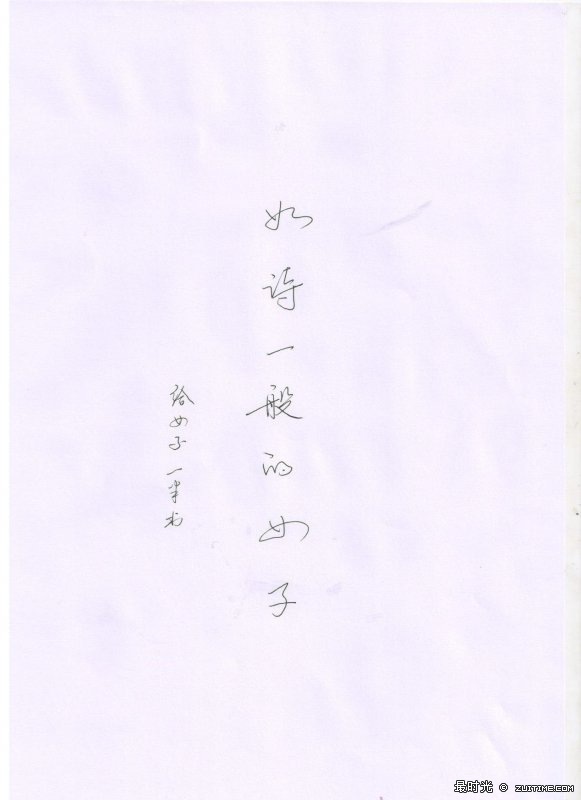 如诗一般的女子
女子一半书
最时光 © ZUITIME.COM